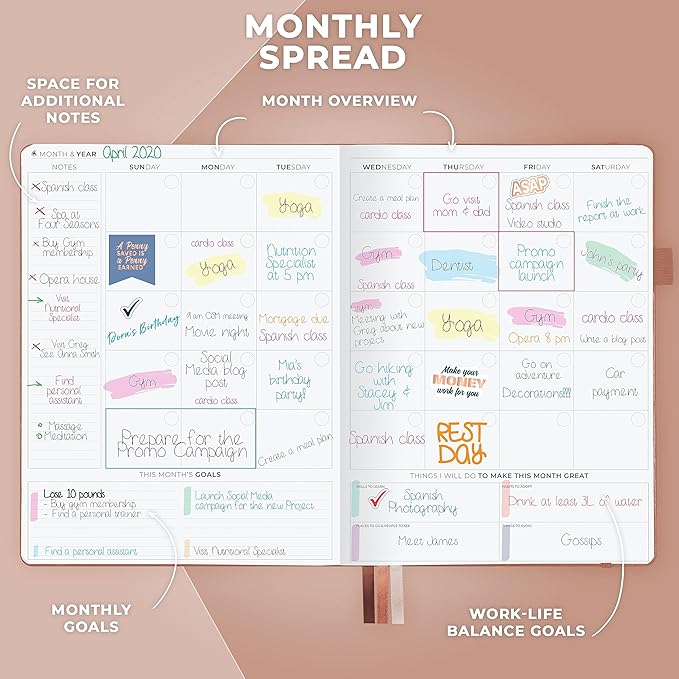 MONTHLY
SPREAD
SPACE FOR
ADDITIONAL
NOTES
MONTH OVERVIEW
MONTH & YEAR April 2020
NOTES SUNDAY MONDAY TUESDAY WEDNESDAY THURSDAY FRIDAY SATURDAY
Spanish class
Spa at
Four Seasons
Buy Gym
membership
Opera house
Visit
Nutritional
Specialist
Visit Greg
See Anna Smith
Find
personal
assistant
Massage
Meditation
Yoga
Create a meal plan
cardio class
Go visit
mom & dad
ASAP
Spanish class
Video studio
Finish the
report at work
A Penny
SAVED IS
a Penny
EARNED
cardio class
Yoga
Nutrition
Specialist
at 5 pm
Gym
Spanish class
Dentist
Promo
campaign
launch
John's party
Dora's Birthday
9 am COM meeting
Movie night
Mortgage due
Spanish class
Gym
Meeting with
Greg about new
project
Yoga
Gym
Opera 8 pm
cardio class
Write a blog post
Gym
Social
Media blog
post
cardio class
Mia's
birthday
party!
Go hiking
with
Stacey &
Jim
Make your
MONEY
work for you
Go on
adventure
Decorations!!!
Car
payment
Prepare for the
Promo Campaign
Create a meal plan
Spanish class
REST
DAY
THIS MONTH'S GOALS
Lose 10 pounds
- Buy gym membership
- Find a personal trainer
Launch Social Media
campaign for the new Project
Find a personal assistant
Visit Nutritional Specialist
THINGS I WILL DO TO MAKE THIS MONTH GREAT
SKILLS TO LEARN
Spanish
Photography
HABITS TO ADOPT
Drink at least 3L of water
PLACES TO GO & PEOPLE TO SEE
Meet James
THINGS TO AVOID
Gossips
MONTHLY
GOALS
WORK-LIFE
BALANCE GOALS